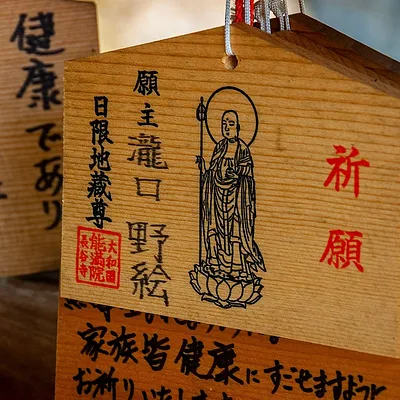 祈願
願主 瀧口 野絵
日限地蔵尊
大和国
能満院
長谷寺
健康であり
家族皆健康にすごせますように
お祈りいたします